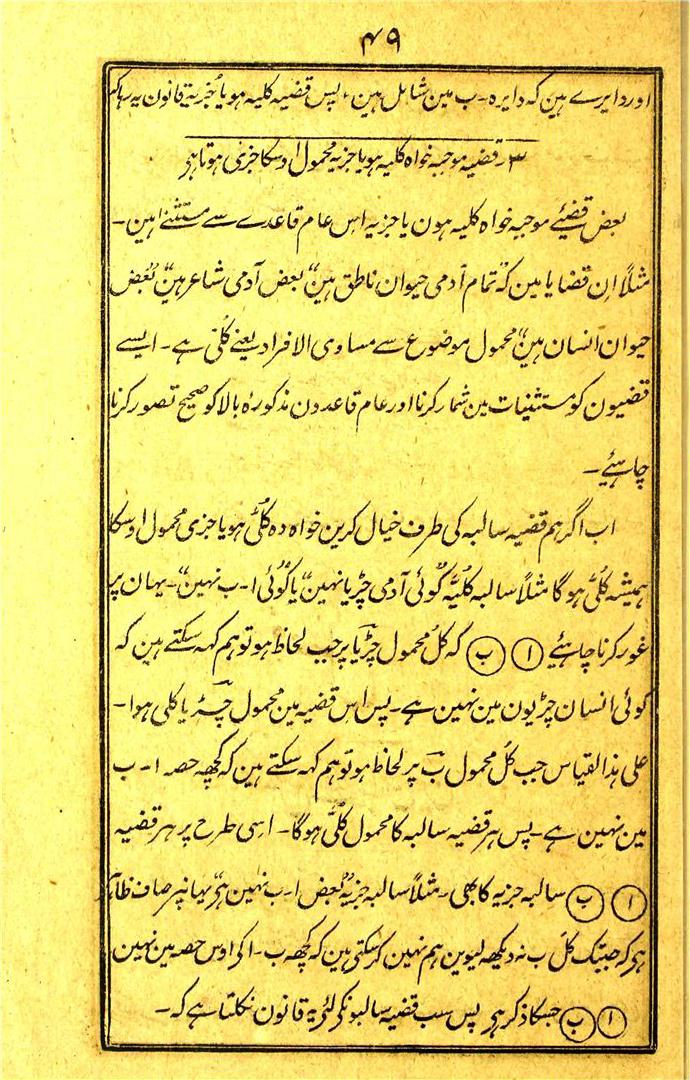 ۴۹
اور دایرے ہین کہ دایرہ۔ ب مین شامل ہین، پس قضیہ کلیہ ہو یا جزیہ قانون یہ رہا کہ
۳۔ قضیہ موجبہ خواہ کلیہ ہو یا جزیہ محمول اوسکا جزئی ہوتا ہی
بعض قضیئے موجبہ خواہ کلیہ ہون یا جزیہ اس عام قاعدے سے مستثنےٰ ہین۔
مثلاً ان قضایا مین کہ "تمام آدمی حیوان ناطق ہین" "بعض آدمی شاعر ہین" "بعض
حیوان انسان ہین" محمول موضوع سے مساوی الافراد یعنے کلی ہے۔ ایسے
قضیون کو مستثنیات مین شمار کرنا اور عام قاعدون مذکورہ بالا کو صحیح تصور کرنا
چاہیئے۔
اب اگر ہم قضیہ سالبہ کی طرف خیال کرین خواہ وہ کلی ہو یا جزی محمول اوسکا
ہمیشہ کلی ہوگا مثلاً سالبہ کلیہ "کوئی آدمی چڑیا نہین" یا "کوئی ا۔ ب نہین"۔ یہان پر
غور کرنا چاہیئے ا ب کہ کل محمول چڑیا پر جب لحاظ ہو تو ہم کہہ سکتے ہین کہ
کوئی انسان چڑیون مین نہین ہے۔ پس اس قضیہ مین محمول چڑیا کلی ہوا۔
علی ہذا القیاس جب کل محمول ب پر لحاظ ہو تو ہم کہہ سکتے ہین کہ کچھہ حصہ ا۔ ب
مین نہین ہے۔ پس ہر قضیہ سالبہ کا محمول کلی ہوگا۔ اسی طرح پر ہر قضیہ
ا ب سالبہ جزیہ کا بھی۔ مثلاً سالبہ جزیہ "بعض ا۔ ب نہین ہی" یہانپر صاف ظاہر
ہی کہ جبتک کل ب نہ دیکھہ لیوین ہم نہین کہہ سکتی ہین کہ کچھہ ب۔ ا کی اوس حصہ مین نہین
ا ب جسکا ذکر ہی پس سب قضیہ سالبونکی لئی یہ قانون نکلتا ہے کہ۔